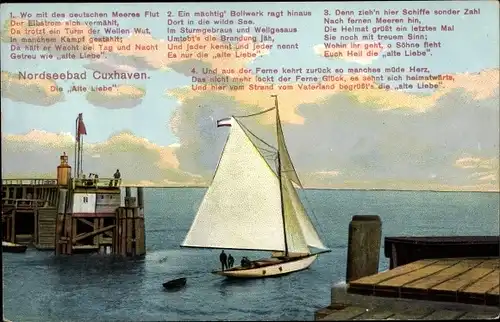 1. Wo mit des deutschen Meeres Flut
Der Elbstrom sich vermählt,
Da trotzt ein Turm der Wellen Wut,
In manchem Kampf gestählt;
Da hält er Wacht bei Tag und Nacht
Getreu wie „alte Liebe".
2. Ein mächtig' Bollwerk ragt hinaus
Dort in die wilde See.
Im Sturmgebraus und Wellgesaus
Umtobt's die Brandung jäh,
Und jeder kennt und jeder nennt
Es nur die „alte Liebe".
3. Denn zieh'n hier Schiffe sonder Zahl
Nach fernen Meeren hin,
Die Heimat grüßt ein letztes Mal
Sie noch mit treuem Sinn;
Wohin ihr geht, o Söhne fleht
Euch Heil die „alte Liebe".
4. Und aus der Ferne kehrt zurück so manches müde Herz,
Das nicht mehr lockt der Ferne Glück, es sehnt sich heimatwärts,
Und hier vom Strand vom Vaterland begrüßt's die „alte Liebe".
Nordseebad Cuxhaven.
Die „Alte Liebe".